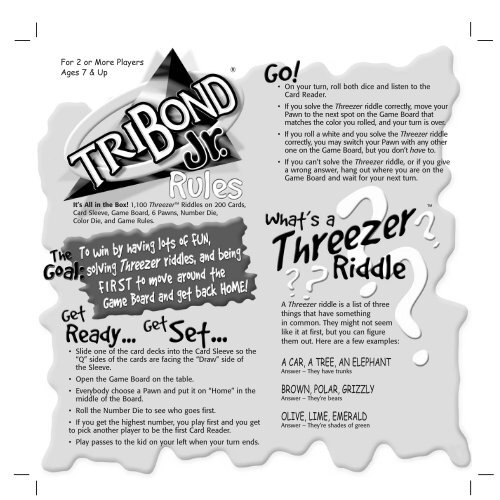 For 2 or More Players
Ages 7 & Up
®
TRIBOND
Jr.
Rules
It's All in the Box! 1,100 Threezer™ Riddles on 200 Cards,
Card Sleeve, Game Board, 6 Pawns, Number Die,
Color Die, and Game Rules.
The Goal:
To win by having lots of FUN,
solving Threezer riddles, and being
FIRST to move around the
Game Board and get back HOME!
Get
Ready... Get Set...
• Slide one of the card decks into the Card Sleeve so the
"Q" sides of the cards are facing the "Draw" side of
the Sleeve.
• Open the Game Board on the table.
• Everybody choose a Pawn and put it on "Home" in the
middle of the Board.
• Roll the Number Die to see who goes first.
• If you get the highest number, you play first and you get
to pick another player to be the first Card Reader.
• Play passes to the kid on your left when your turn ends.
Go!
• On your turn, roll both dice and listen to the
Card Reader.
• If you solve the Threezer riddle correctly, move your
Pawn to the next spot on the Game Board that
matches the color you rolled, and your turn is over.
• If you roll a white and you solve the Threezer riddle
correctly, you may switch your Pawn with any other
one on the Game Board, but you don't have to.
• If you can't solve the Threezer riddle, or if you give
a wrong answer, hang out where you are on the
Game Board and wait for your next turn.
What's a
Threezer™
Riddle
? ? ? ? ?
A Threezer riddle is a list of three
things that have something
in common. They might not seem
like it at first, but you can figure
them out. Here are a few examples:
A CAR, A TREE, AN ELEPHANT
Answer – They have trunks
BROWN, POLAR, GRIZZLY
Answer – They're bears
OLIVE, LIME, EMERALD
Answer – They're shades of green